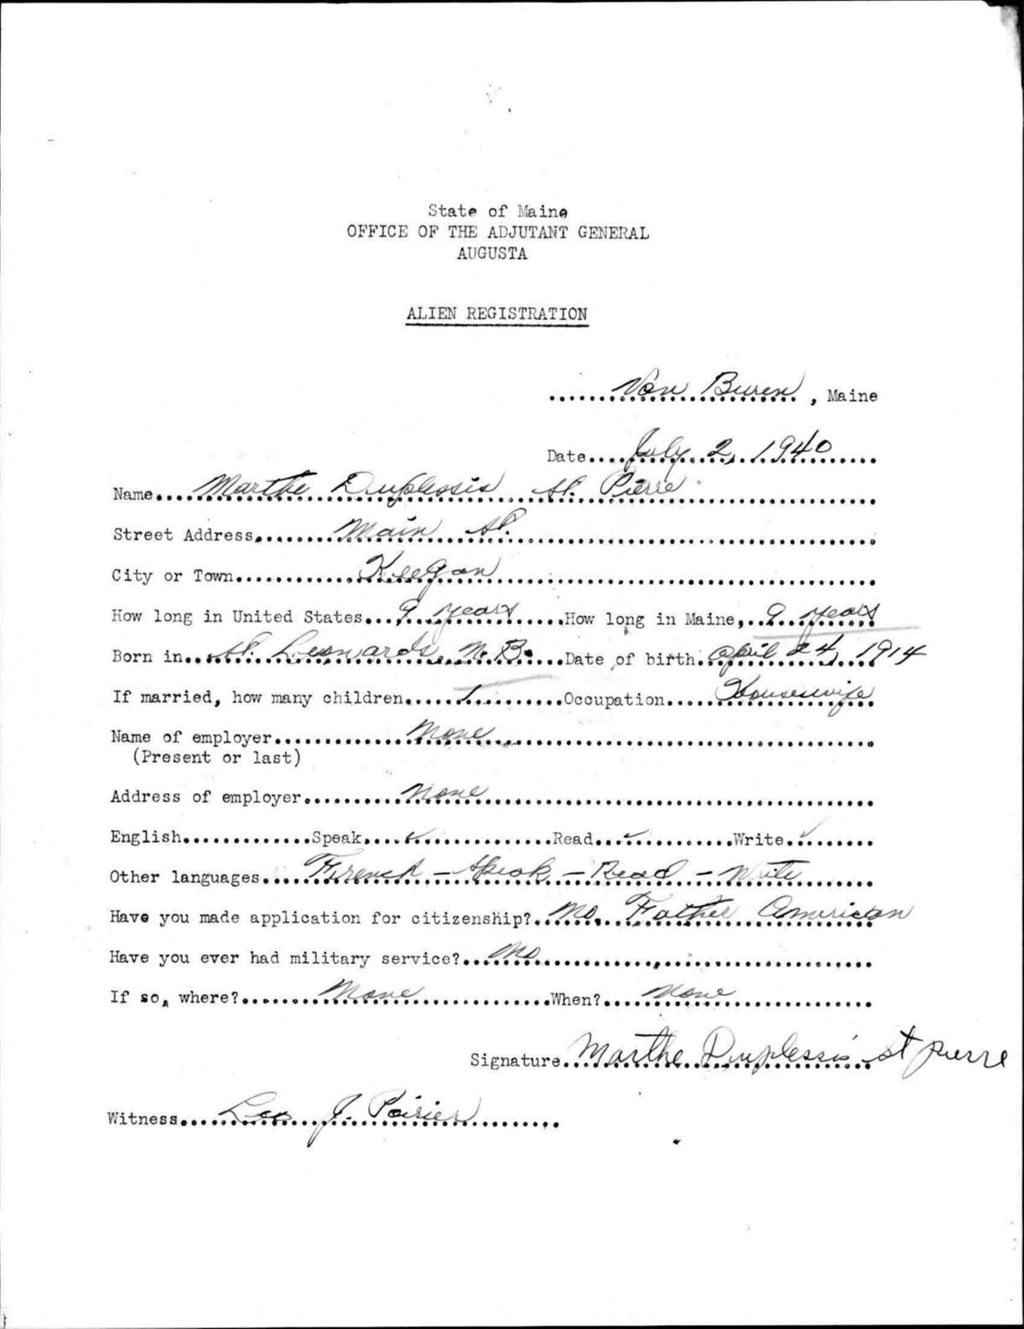 State of Maine
OFFICE OF THE ADJUTANT GENERAL
AUGUSTA
ALIEN REGISTRATION
Van Buren, Maine
Date July 2, 1940
Name Marthe Duplessis St. Pierre
Street Address Main St.
City or Town Keegan
How long in United States 9 years How long in Maine, 9 years
Born in St. Leonards, N.B. Date of birth April 24, 1914
If married, how many children 1 Occupation Housewife
Name of employer None
(Present or last)
Address of employer None
English Speak ✓ Read ✓ Write ✓
Other languages French - Speak - Read - Write
Have you made application for citizenship? No, Father American
Have you ever had military service? No
If so, where? None When? None
Signature Marthe Duplessis st pierre
Witness Leo J. Poirier